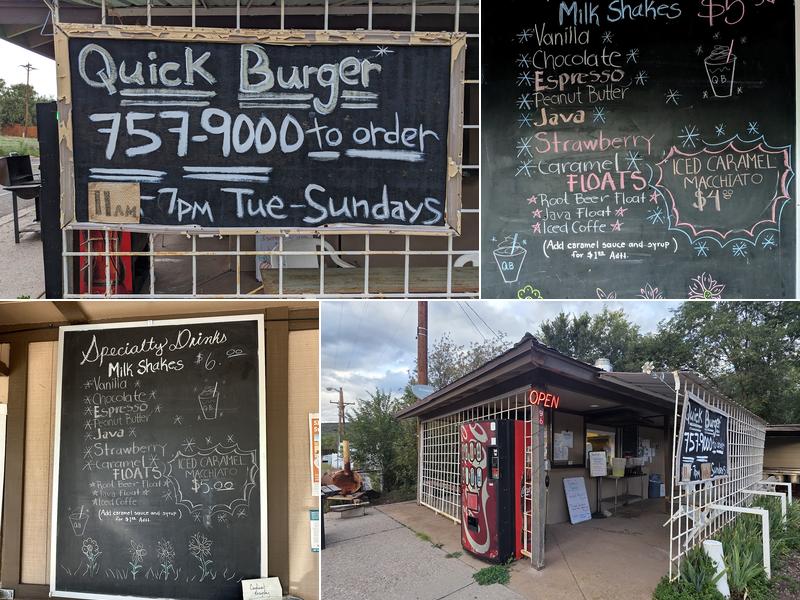 Quick Burger
757-9000 to order
11AM -7PM Tue-Sundays
Milk Shakes $5
*Vanilla
*Chocolate
*Espresso
*Peanut Butter
*Java
*Strawberry
*Caramel
FLOATS
*Root Beer Float
*Java Float
*Iced Coffe
(Add caramel sauce and syrup)
for $1.00 Add.
ICED CARAMEL
MACCHIATO
$4
QB
Q.B.
Specialty Drinks
Milk Shakes $6.00
*Vanilla
*Chocolate
*Espresso
*Peanut Butter
*Java
*Strawberry
*Caramel
FLOATS
*Root Beer Float
*Java Float
*Iced Coffe
(Add caramel sauce and syrup)
for $1.00 Add.
ICED CARAMEL
MACCHIATO
$5.00
OPEN
Quick Burger
757-9000